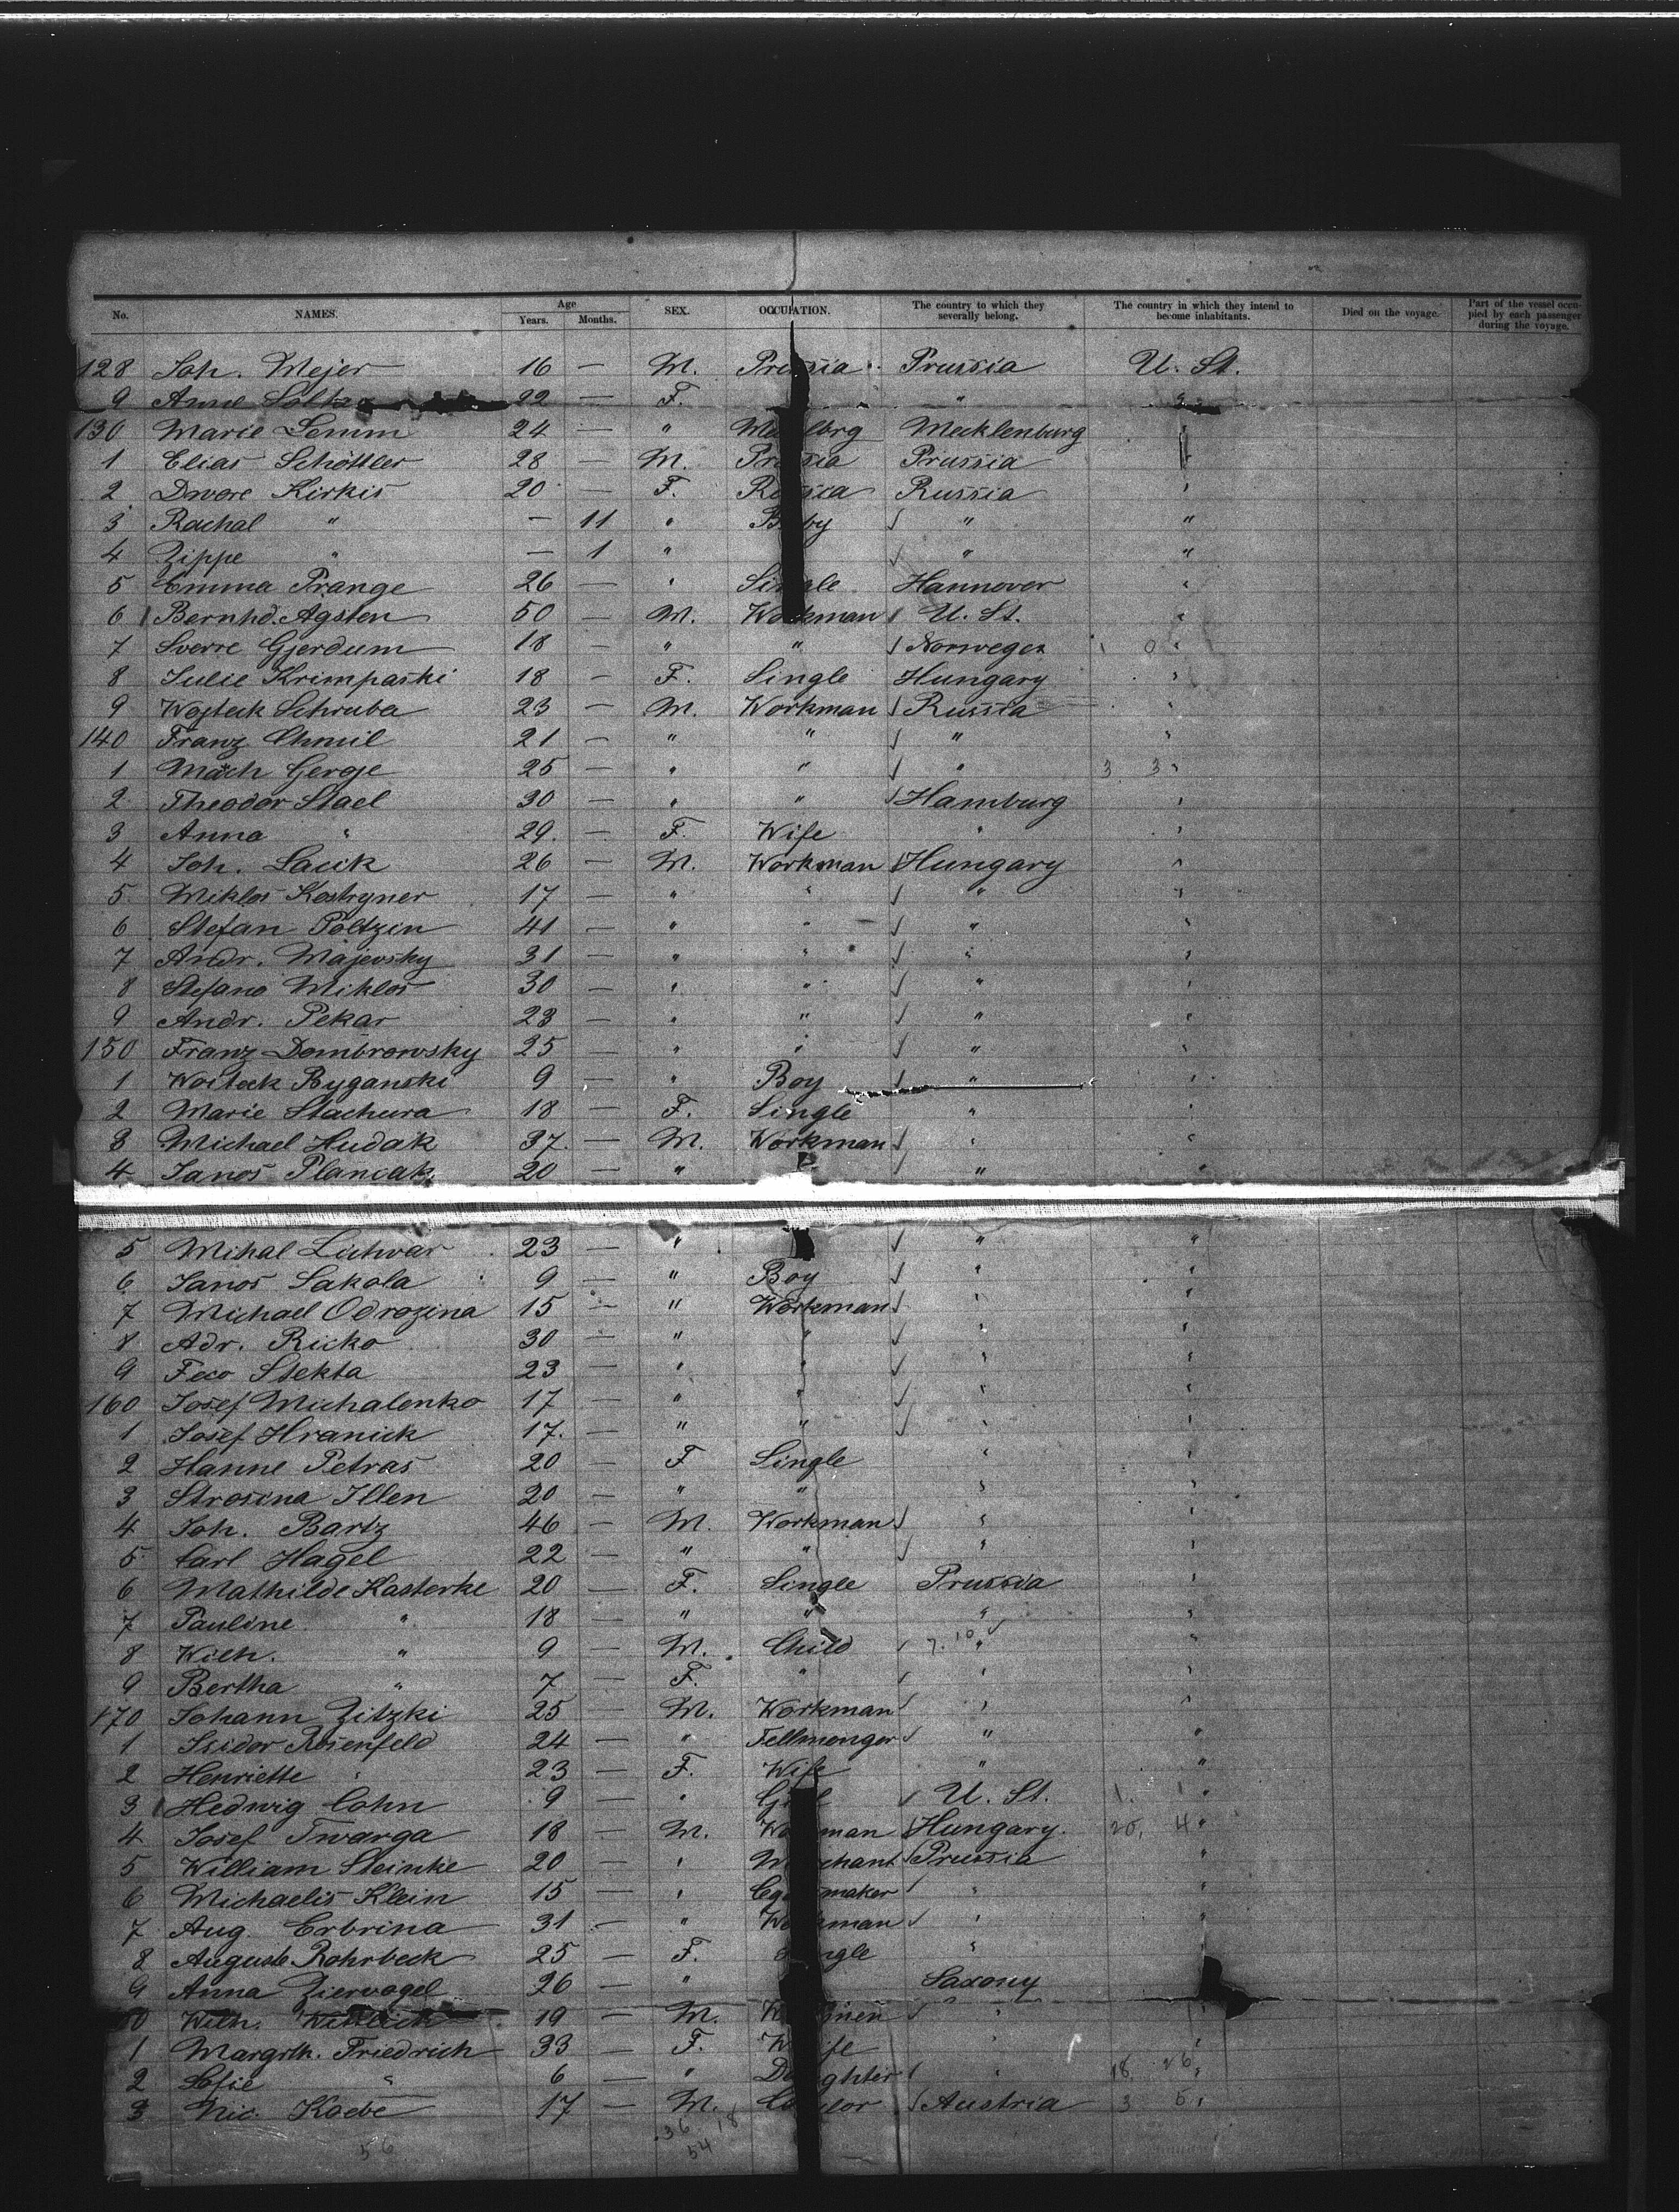 No. NAMES. Age Years. Months. SEX. OCCUPATION. The country to which they severally belong. The country in which they intend to become inhabitants. Died on the voyage. Part of the vessel occupied by each passenger during the voyage.
128 Joh. Mejer 16 — M. Prussia Prussia U. St.
9 Anne 22 — F. "
130 Marie Lemm 24 — " Mecklbrg Mecklenburg "
1 Elias Schöttler 28 — M. Prussia Prussia "
2 Dwore Kirkis 20 — F. Russia Russia "
3 Rachal " — 11 " Baby " "
4 Zippe " — 1 " " "
5 Emma Prange 26 — " Single Hannover "
6 Bernhd. Agsten 50 — M. Workman U. St. "
7 Sverre Gjerdum 18 — " " Norwegen "
8 Julie Krimpaski 18 — F. Single Hungary "
9 Wojteck Schruba 23 — M. Workman Russia "
140 Franz Chmil 21 — " " " "
1 Mach Gergje 25 — " " " 3 3 "
2 Theodor Stael 30 — " " Hamburg "
3 Anna " 29. — F. Wife " "
4 Joh. Lacik 26 — M. Workman Hungary "
5 Miklos Kostryner 17 — " " " "
6 Stefan Poltzin 41 — " " " "
7 Andr. Majevsky 31 — " " " "
8 Stefano Miklos 30 — " " " "
9 Andr. Pekar 23 — " " " "
150 Franz Dombrowsky 25 — " " " "
1 Woiteck Ryganski 9 — " Boy " "
2 Marie Stachura 18 — F. Single " "
3 Michael Hudak 37 — M. Workman " "
4 Janos Plancak 20 — " " "
5 Mihal Lichvar 23 — " " "
6 Janos Sakola 9 — " Boy " "
7 Michael Odrozina 15 — " Workman " "
8 Adr. Ricko 30 — " " " "
9 Feco Stekta 23 — " " " "
160 Josef Michalenko 17 — " " " "
1 Josef Hranick 17. — " " " "
2 Hanne Petras 20 — F Single " "
3 Strosina Illen 20 — " " " "
4 Joh. Bartz 46 — M. Workman " "
5 Carl Hagel 22 — " " " "
6 Mathilde Kasterke 20 — F. Single Prussia "
7 Pauline " 18 — " " " "
8 Wilh. " 9 — M. Child 7. 10 " "
9 Bertha " 7 — F. " " "
170 Johann Zitzki 25 — M. Workman " "
1 Isidor Rosenfeld 24 — " Fellmonger " "
2 Henriette " 23 — F. Wife " "
3 Hedwig Cohn 9 — " Girl U. St. 1. 1 "
4 Josef Twarga 18 — M. Workman Hungary. 20, 4 "
5 William Steinke 20 — " Merchant Prussia "
6 Michaelis Klein 15 — " maker " "
7 Aug. Erbrina 31 — " Workman " "
8 Auguste Rohrbeck 25 — F. Single " "
9 Anna Ziervogel 26 — " Saxony
Wilh. 19 — M. " "
1 Margrth. Friedrich 33 — F. Wife " "
2 Sofie " 6 — " Daughter " 18 26 "
3 Nic. Koebe 17 — M. Austria 3 5 "
36 18
56 54